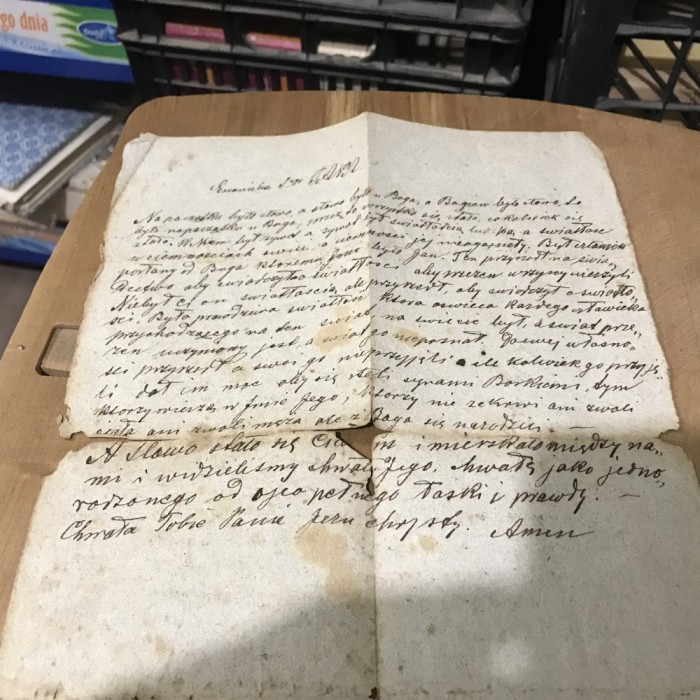 go dnia
Na początku było słowo, a słowo było u Boga, a Bogiem było słowo, to
było napoczątku u Boga, przez to wszystko się stało, cokolwiek się
stało. W Nim był żywot a żywot był światłością ludzką, a światłość
w ciemnościach świeci a ciemności jej nieogarnęły. Był człowiek
posłany od Boga któremu Jmie było Jan. Ten przyszedł na świa„
dectwo aby świadczył o światłości, aby przezen wszyscy wierzyli
Niebył on światłością, ale przyszedł, aby świadczył o światło„
ści. Była prawdziwa światłość która oswieca każdego człowieka
przychodzącego na ten świat, na świecie był, a świat prze„
zen uczyniony jest, a świat go niepoznał. Do swej własno„
ści przyszedł a swoi go nieprzyjęli a ile kolwiek go przyję„
li dał im moc aby się stali synami Bożkiemi, tym
ktorzy wierzą w Jmie Jego, ktorzy nie zekrwi ani zwoli
ciała ani zwoli męza ale z Boga się narodzili.
A Słowo stało się Ciałem i mieszkało między na„
mi i widzieliśmy chwałę Jego, chwałę jako jedno„
rodzonego od ojca pełnego łaski i prawdy. —
Chwała Tobie Panie Jezu chryste. Amen